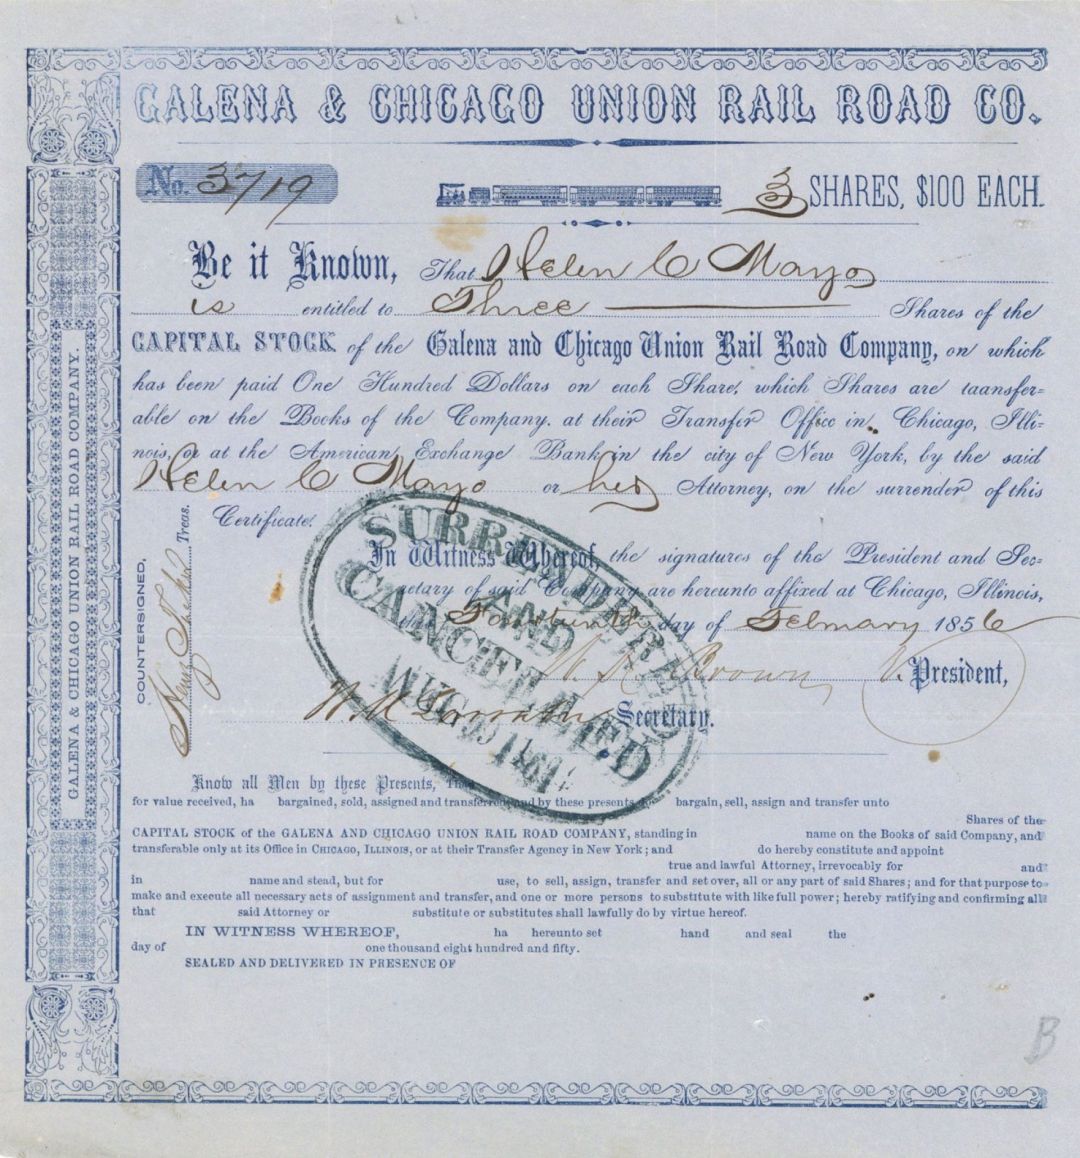 GALENA & CHICAGO UNION RAIL ROAD CO.
No. 3719
3 SHARES, $100 EACH.
Be it Known, That Helen C Mayo
is entitled to Three Shares of the
CAPITAL STOCK of the Galena and Chicago Union Rail Road Company, on which
has been paid One Hundred Dollars on each Share, which Shares are taansfer-
able on the Books of the Company, at their Transfer Office in Chicago, Illi-
nois, or at the American Exchange Bank in the city of New York, by the said
Helen C Mayo or her Attorney, on the surrender of this
Certificate.
In Witness Whereof, the signatures of the President and Sec-
retary of said Company are hereunto affixed at Chicago, Illinois,
day of February 1856
W. H. Brown V. President,
W M Secretary.
COUNTERSIGNED,
Henry Treas.
GALENA & CHICAGO UNION RAIL ROAD COMPANY.
SURRENDERED
AND
CANCELLED
AUG
Know all Men by these Presents, That
for value received, ha bargained, sold, assigned and transferred and by these presents do bargain, sell, assign and transfer unto
Shares of the
CAPITAL STOCK of the GALENA AND CHICAGO UNION RAIL ROAD COMPANY, standing in name on the Books of said Company, and
transferable only at its Office in CHICAGO, ILLINOIS, or at their Transfer Agency in New York; and do hereby constitute and appoint
true and lawful Attorney, irrevocably for and
in name and stead, but for use, to sell, assign, transfer and set over, all or any part of said Shares; and for that purpose to
make and execute all necessary acts of assignment and transfer, and one or more persons to substitute with like full power; hereby ratifying and confirming all
that said Attorney or substitute or substitutes shall lawfully do by virtue hereof.
IN WITNESS WHEREOF, ha hereunto set hand and seal the
day of one thousand eight hundred and fifty.
SEALED AND DELIVERED IN PRESENCE OF
B